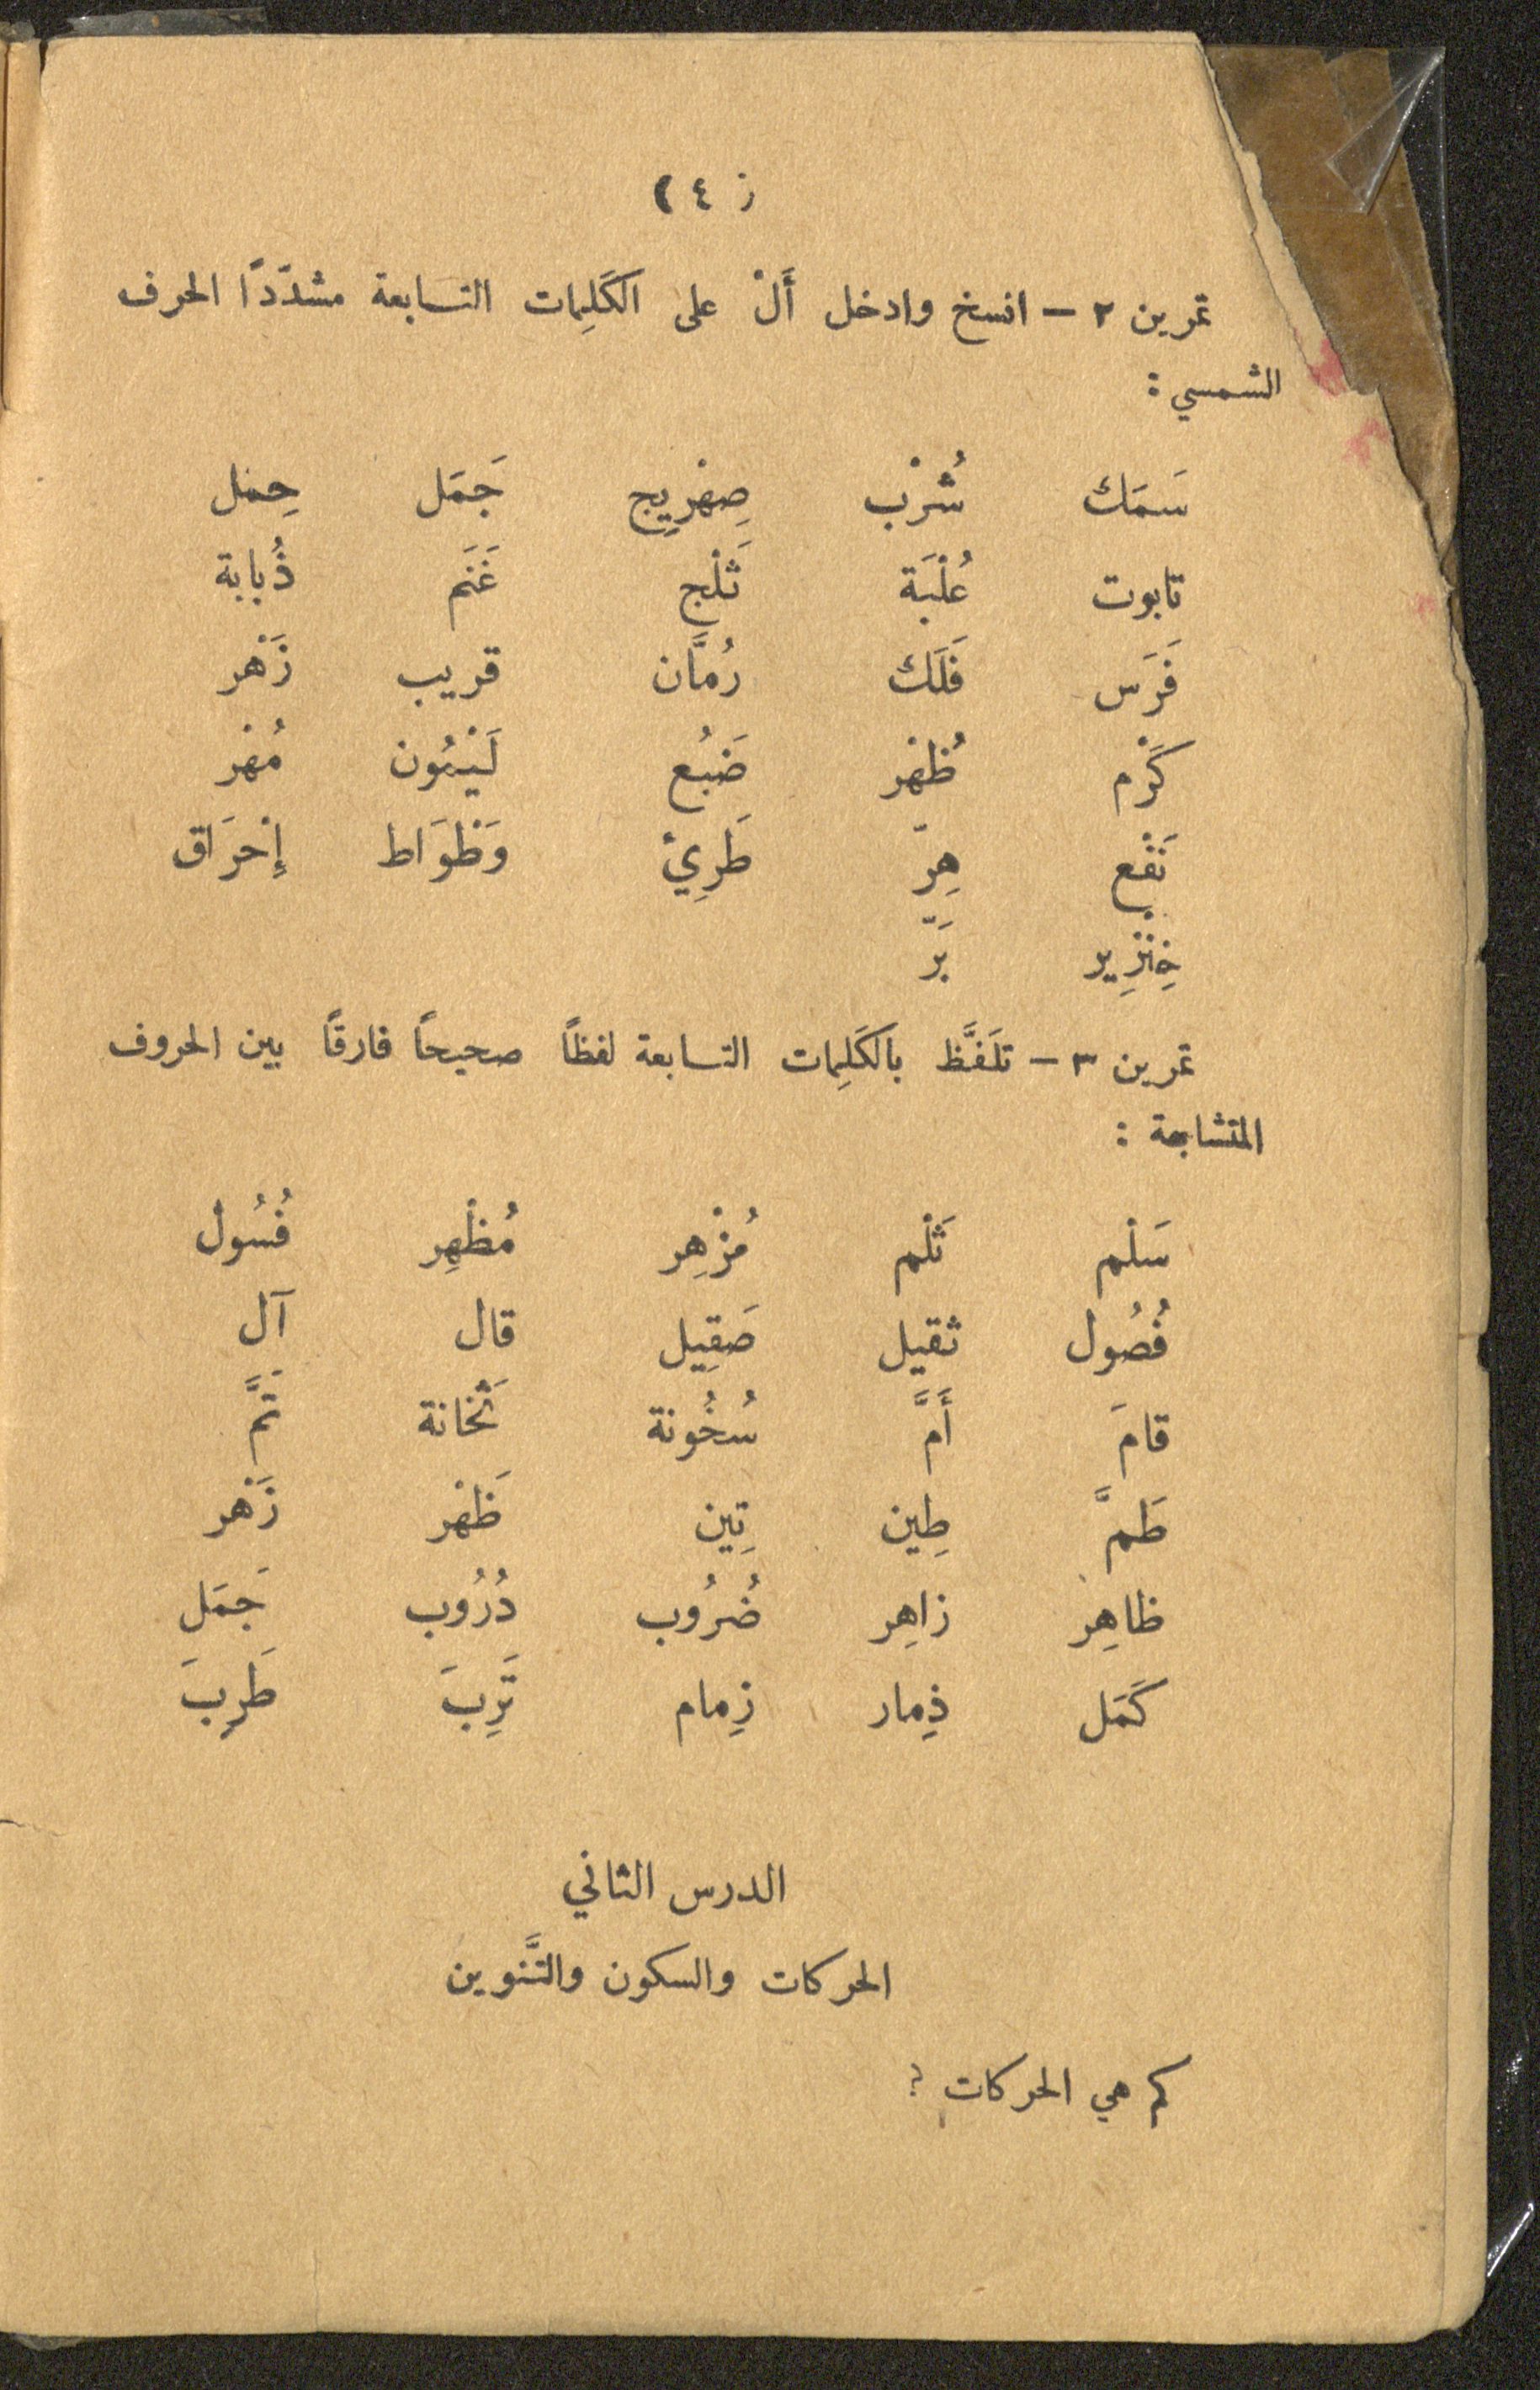 ( ٤ )
تمرين ٢ – انسخ وادخل أَلْ على الكَلِمات التـابعة مشدّدًا الحرف
الشمسي :
سَمَك شُرْب صِهْرِيج جَمَل حِمْل
تابوت عُلْبَة ثَلْج غَنَم ذُبابة
فَرَس فَلَك رُمَّان قريب زَهْر
كَرْم ظُهْر ضَبُع لَيْمُون مُهْر
نَفْع هِرّ طَرِيْ وَطْوَاط إِحْرَاق
خِنْزِير بَرّ
تمرين ٣ – تلَفَّظ بالكَلِمات التـابعة لفظاً صحيحاً فارقاً بين الحروف
المتشابهة :
سَلْم ثَلْم مُزْهِر مُظْهِر فُسُول
فُصُول ثقيل صَقِيل قال آل
قامَ أَمَّ سُخُونة ثَخَانة تَمَّ
طَمَّ طِين تِين ظَهْر زَهْر
ظاهِر زاهِر ضُرُوب دُرُوب جَمَل
كَمَل ذِمار زِمام تَرِبَ طَرِبَ
الدرس الثاني
الحركات والسكون والتَّنوين
كم هي الحركات ؟